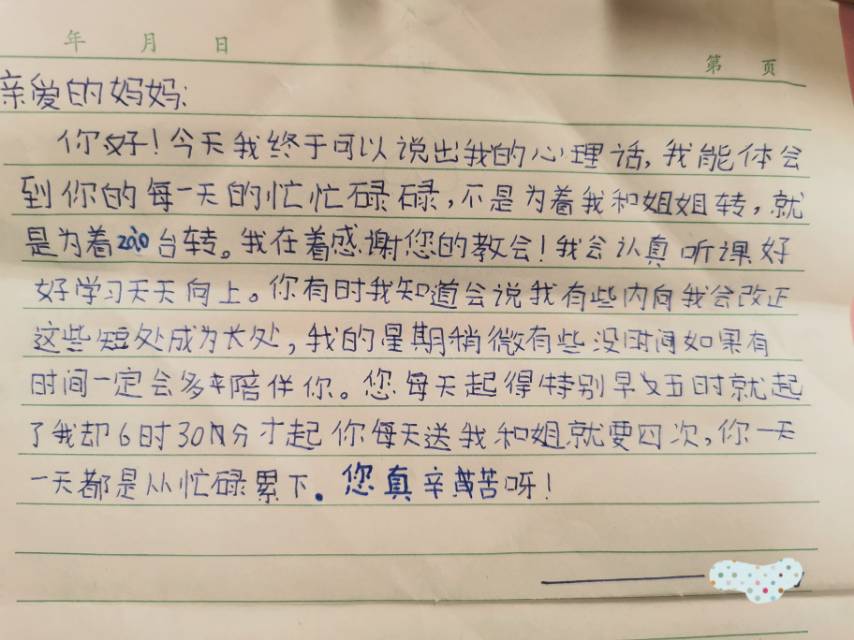 年 月 日
第 页
亲爱的妈妈:
你好!今天我终于可以说出我的心理话,我能体会
到你的每一天的忙忙碌碌,不是为着我和姐姐转,就
是为着zào台转。我在着感谢您的教会!我会认真听课好
好学习天天向上。你有时我知道会说我有些内向我会改正
这些短处成为长处,我的星期稍微有些没时间如果有
时间一定会多来陪伴你。您每天起得特别早5五时就起
了我却6时30分才起你每天送我和姐就要四次,你一天
一天都是从忙碌累下。您真辛苦呀!